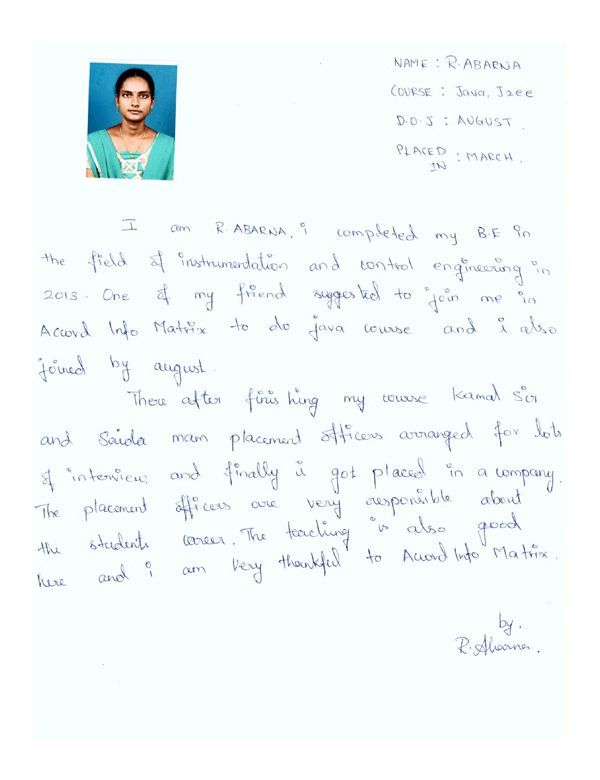 NAME : R.ABARNA
COURSE : Java, J2ee
D.O.J : AUGUST
PLACED IN : MARCH.
I am R.ABARNA, i completed my B.E in
the field of instrumentation and control engineering in
2013. One of my friend suggested to join me in
Accord Info Matrix to do java course and i also
joined by august.
There after finishing my course Kamal Sir
and Saida mam placement officers arranged for lots
of interview. and finally i got placed in a company.
The placement officers are very responsible about
the students career. The teaching is also good
here and i am very thankful to Accord Info Matrix.
by.
R.Abarna.